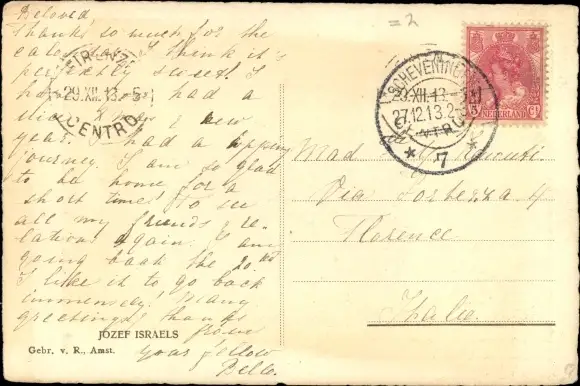 Beloved,
Thanks so much for the
calendar. I think it's
perfectly sweet! I
had a
new
year. I had a happy
journey. I am so glad
to be home for a
short time! To see
all my friends & re-
lations again. I am
going back the 20
I like it to go back
immensely! Many
greetings & thanks
from
your fellow
Bella.
JOZEF ISRAELS
Gebr. v. R., Amst.
=2
FIRENZE
29.XII.13.-5
CENTRO
SCHEVENINGEN
27.12.13.
7
NEDERLAND
Mad
Via Fortezza 4
Florence
Italie.